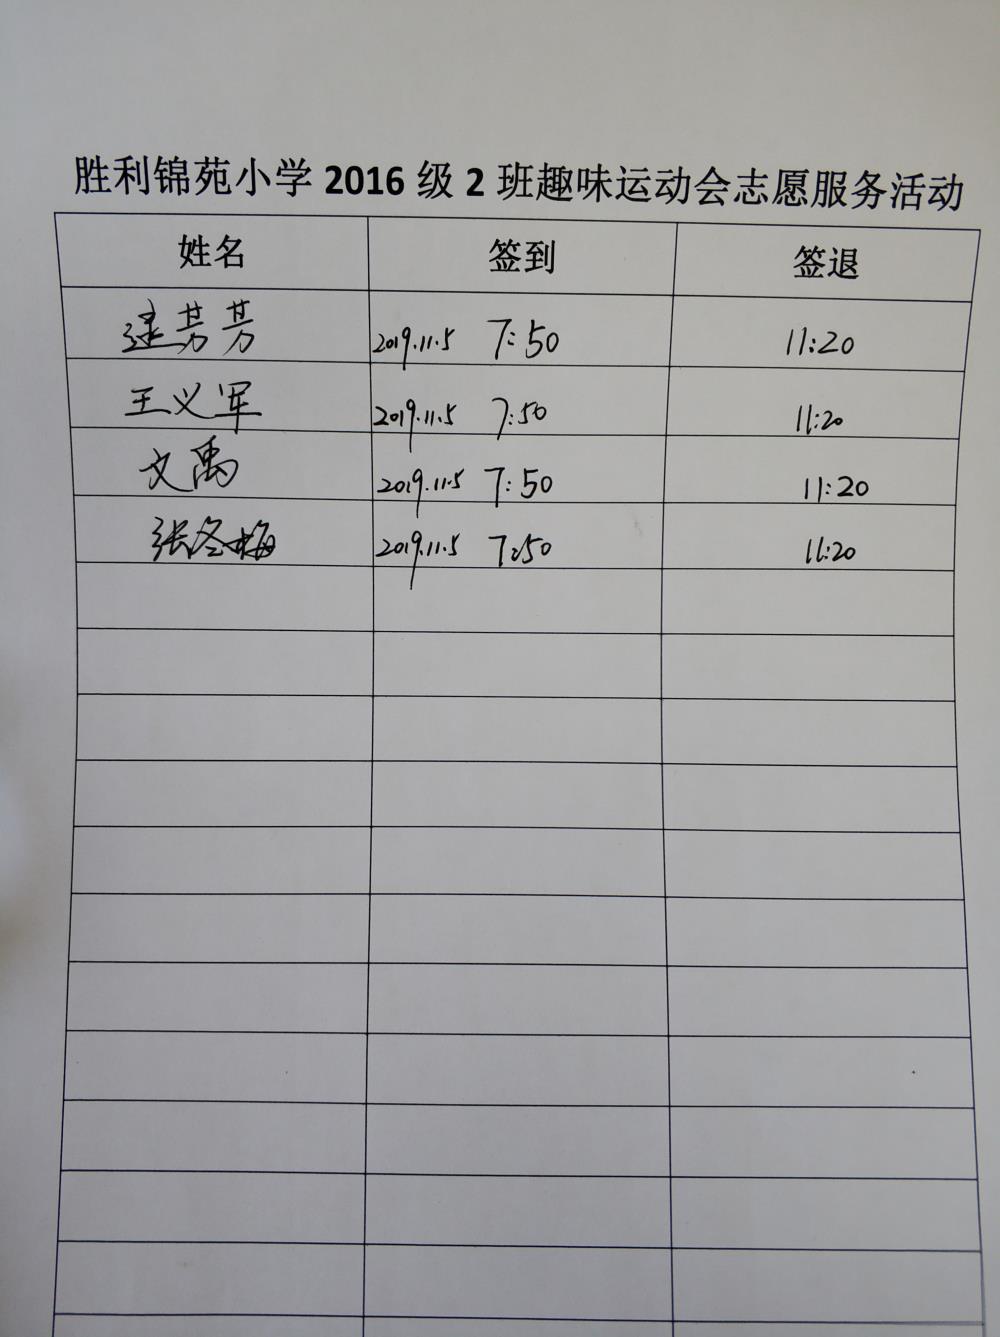 胜利锦苑小学2016级2班趣味运动会志愿服务活动
姓名 签到 签退
芳芳 2019.11.5 7:50 11:20
王义军 2019.11.5 7:50 11:20
文禹 2019.11.5 7:50 11:20
张冬梅 2019.11.5 7:50 11:20